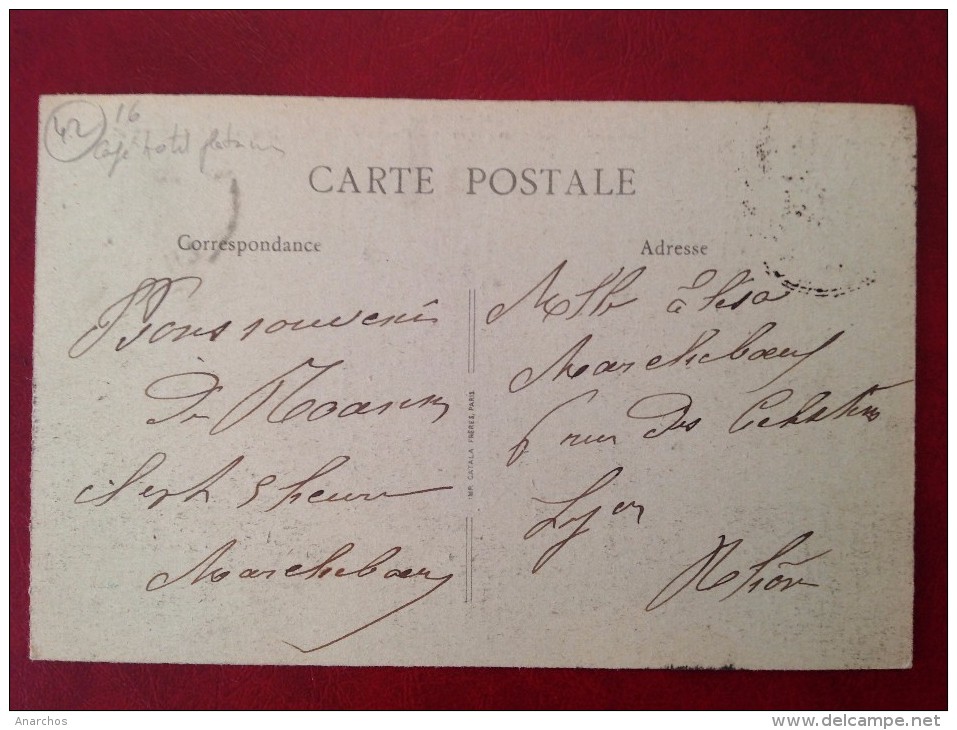 42
16
Café hotel
CARTE POSTALE
Correspondance
Adresse
Bons souvenir
De Roanne
Sept 5 heure
Marcheboeuf
IMP. CATALA FRÈRES, PARIS
Mlle
Marcheboeuf
6 rue Des Celestins
Lyon
Rhône
Anarchos
delcampe.net